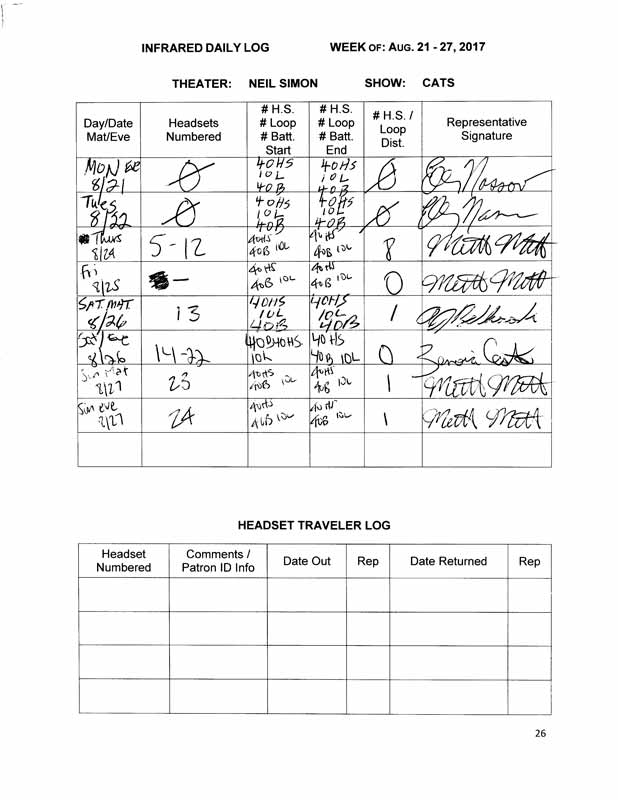 INFRARED DAILY LOG WEEK OF: AUG. 21 - 27, 2017
THEATER: NEIL SIMON SHOW: CATS
Day/Date Mat/Eve Headsets Numbered # H.S. # Loop # Batt. Start # H.S. # Loop # Batt. End # H.S. / Loop Dist. Representative Signature
MON EVE 8/21 Ø 40HS 10L 40B 40HS 10L 40B Ø
Tues 8/22 Ø 40HS 10L 40B 40HS 10L 40B Ø
Thurs 8/24 5-12 40HS 40B 10L 40HS 40B 10L 8
Fri 8/25 - 40HS 40B 10L 40HS 40B 10L 0
SAT. MAT. 8/26 13 40HS 10L 40B 40HS 10L 40B 1
Sat/Eve 8/26 14-22 40B 40HS 10L 40HS 40B 10L 0
Sun Mat 8/27 23 40HS 40B 10L 40HS 40B 10L 1
Sun eve 8/27 24 40HS 40B 10L 40HS 40B 10L 1
HEADSET TRAVELER LOG
Headset Numbered Comments / Patron ID Info Date Out Rep Date Returned Rep
26